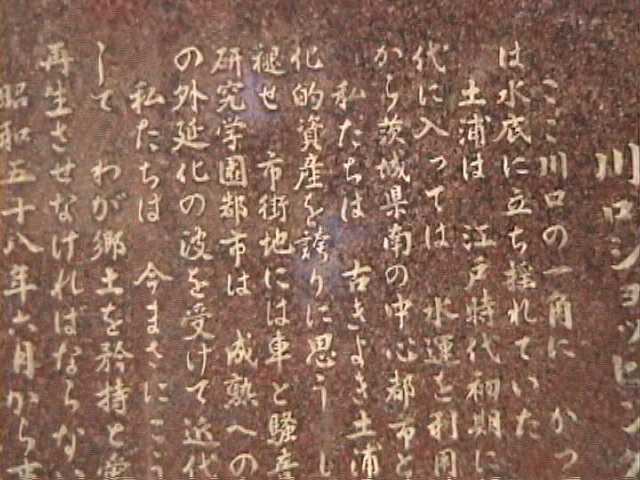 川口ショッピング
ここ川口の一角に かつ
は水底に立ち揺れていた
土浦は 江戸時代初期に
代に入っては 水運を利用
から茨城県南の中心都市と
私たちは 古きよき土浦
化的資産を誇りに思う し
褪せ 市街地には車と騒音
研究学園都市は 成熟への
の外延化の波を受けて近代
私たちは 今まさにこう
して わが郷土を矜持と
再生させなければならない
昭和五十八年六月から